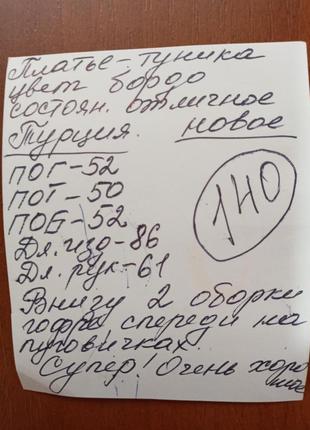 Платье-туника
цвет бордо
состоян. отличное
Турция. новое
ПОГ-52
ПОТ-50
ПОБ-52
140
Дл. изд-86
Дл. рук-61
Внизу 2 оборки
гофре спереди на
пуговичках.
Супер! Очень хоро
шое